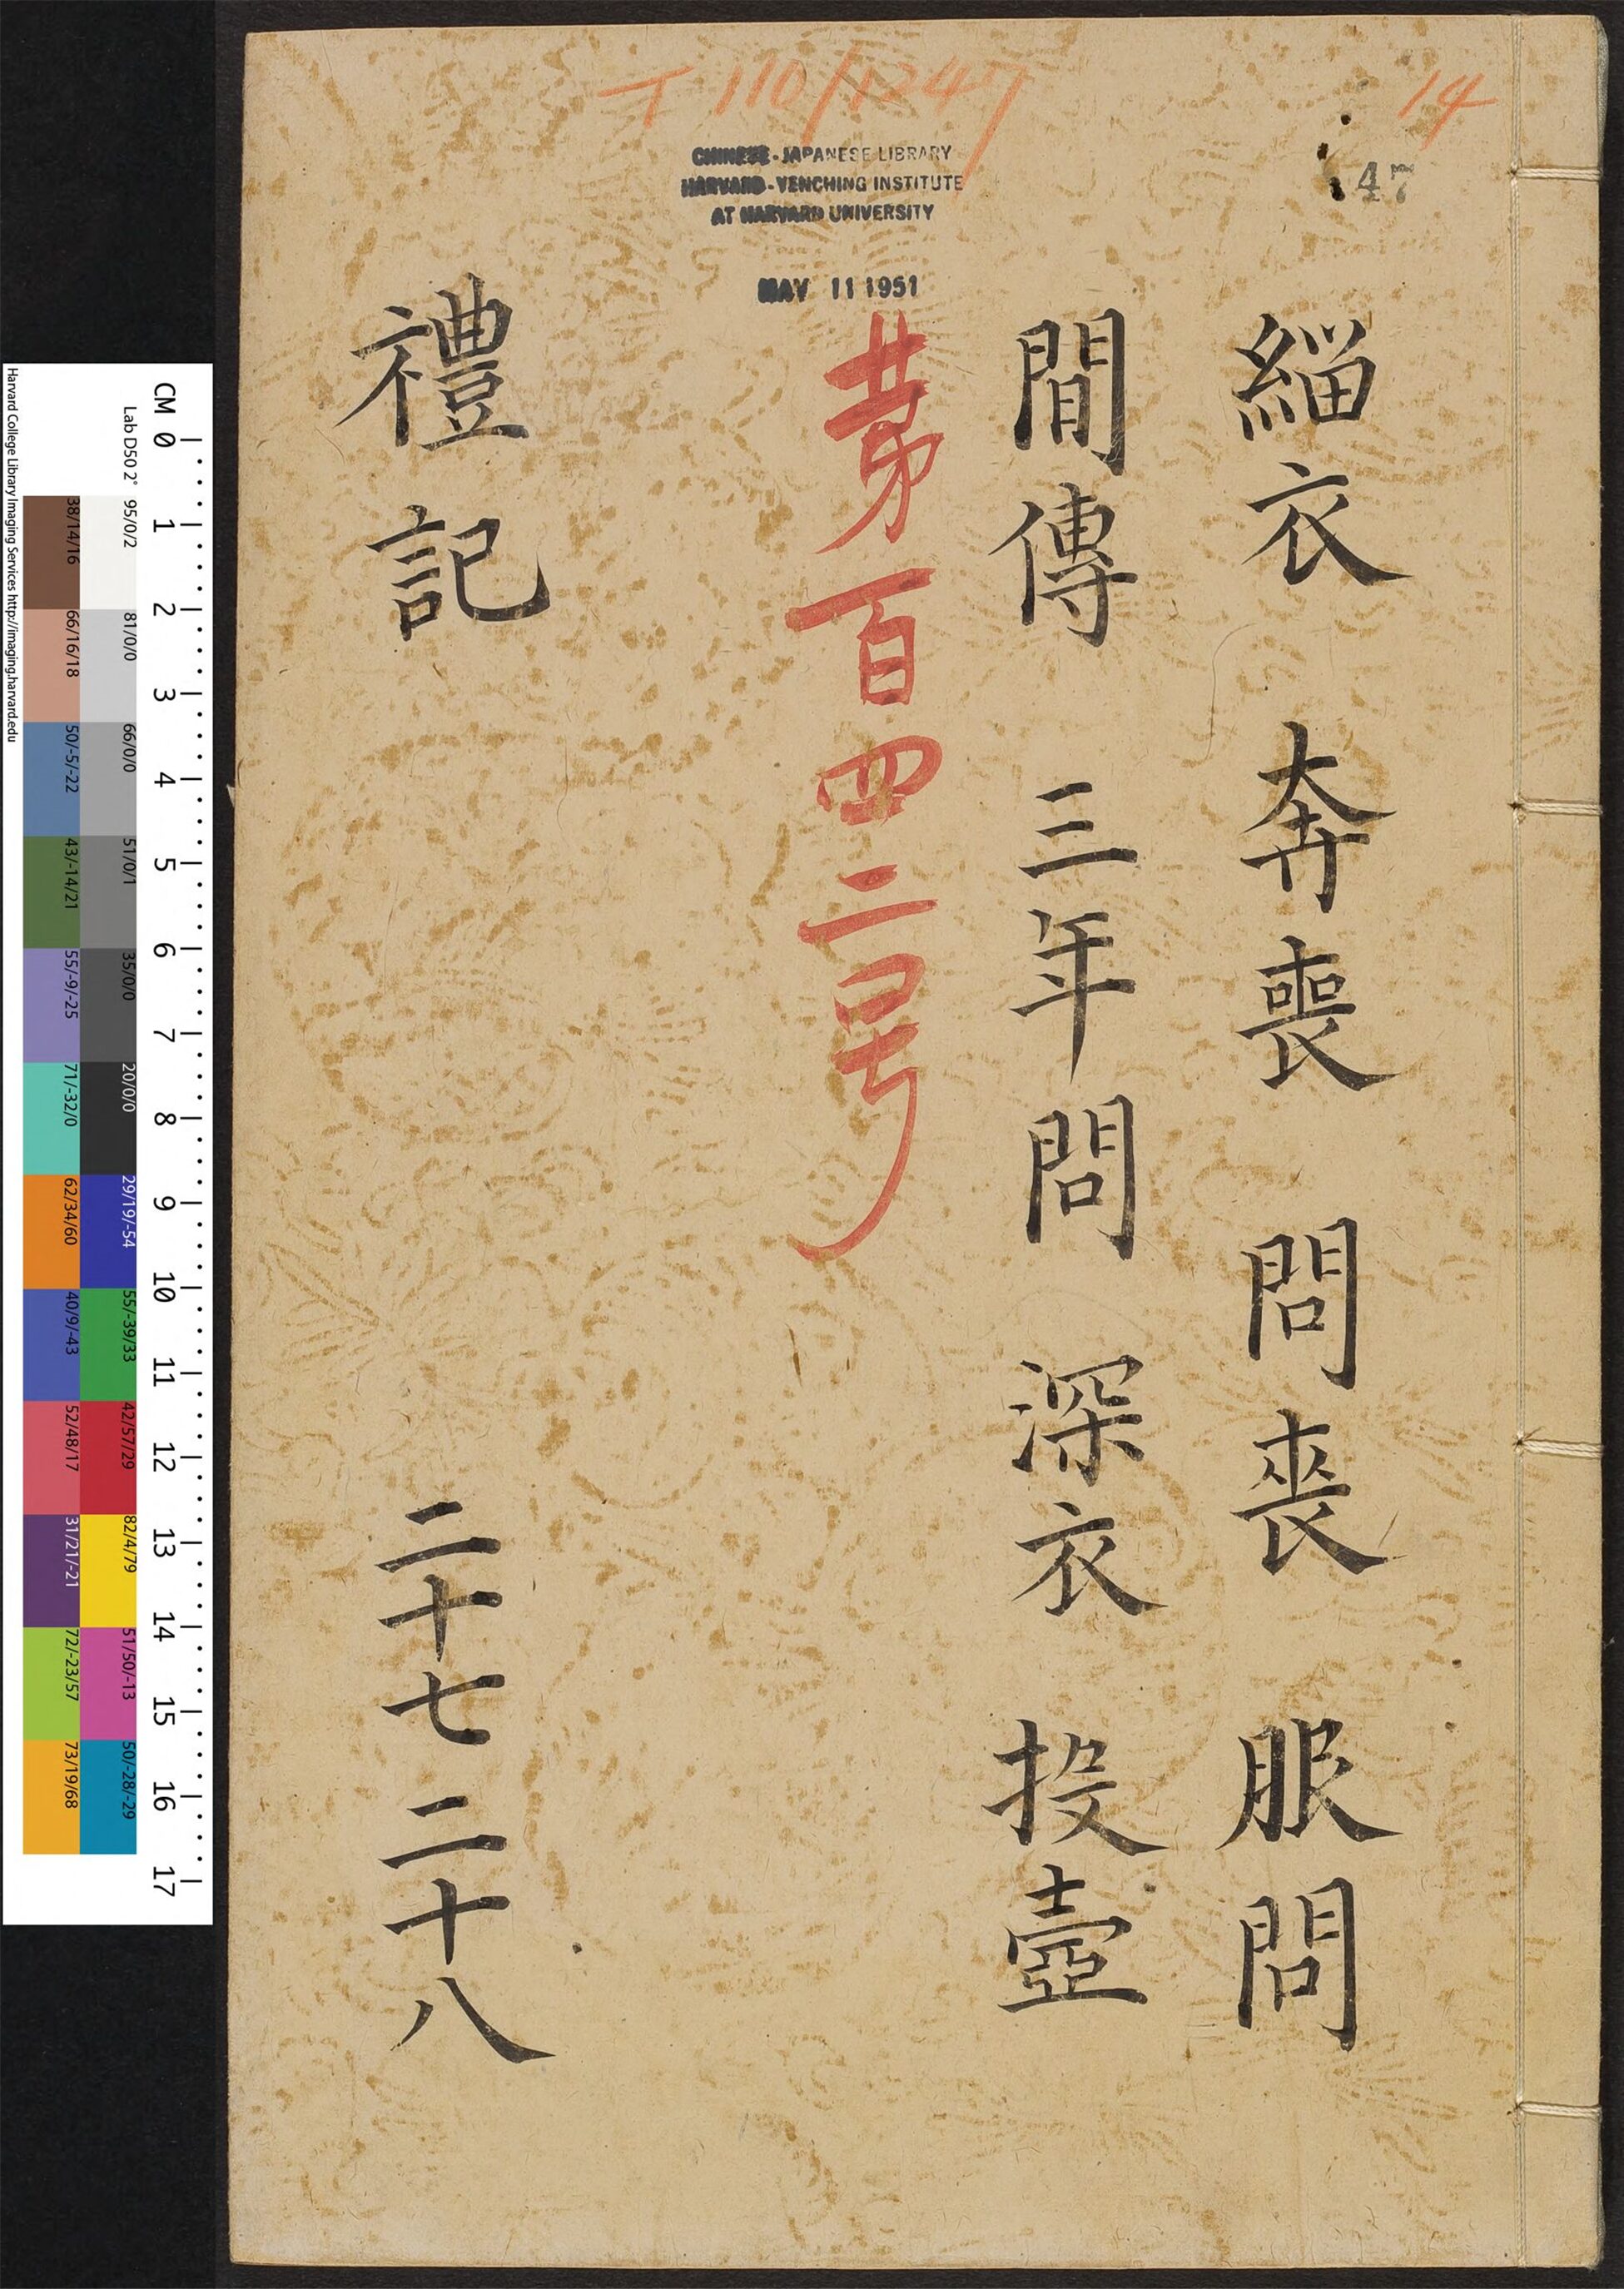 T 110/1247
14
CHINESE-JAPANESE LIBRARY
HARVARD-YENCHING INSTITUTE
AT HARVARD UNIVERSITY
MAY 11 1951
47
緇衣 奔喪 問喪 服問
間傳 三年問 深衣 投壺
第百四二号
禮記 二十七 二十八
CM 0 1 2 3 4 5 6 7 8 9 10 11 12 13 14 15 16 17
Lab D50 2° 95/0/2 81/0/0 66/0/0 51/0/1 35/0/0 20/0/0 29/19/-54 55/-39/33 42/57/29 82/4/79 51/50/-13 50/-28/-29
38/14/16 66/16/18 50/-5/-22 43/-14/21 55/-9/-25 71/-32/0 62/34/60 40/9/-43 52/48/17 31/21/-21 72/-23/57 73/19/68
Harvard College Library Imaging Services http://imaging.harvard.edu